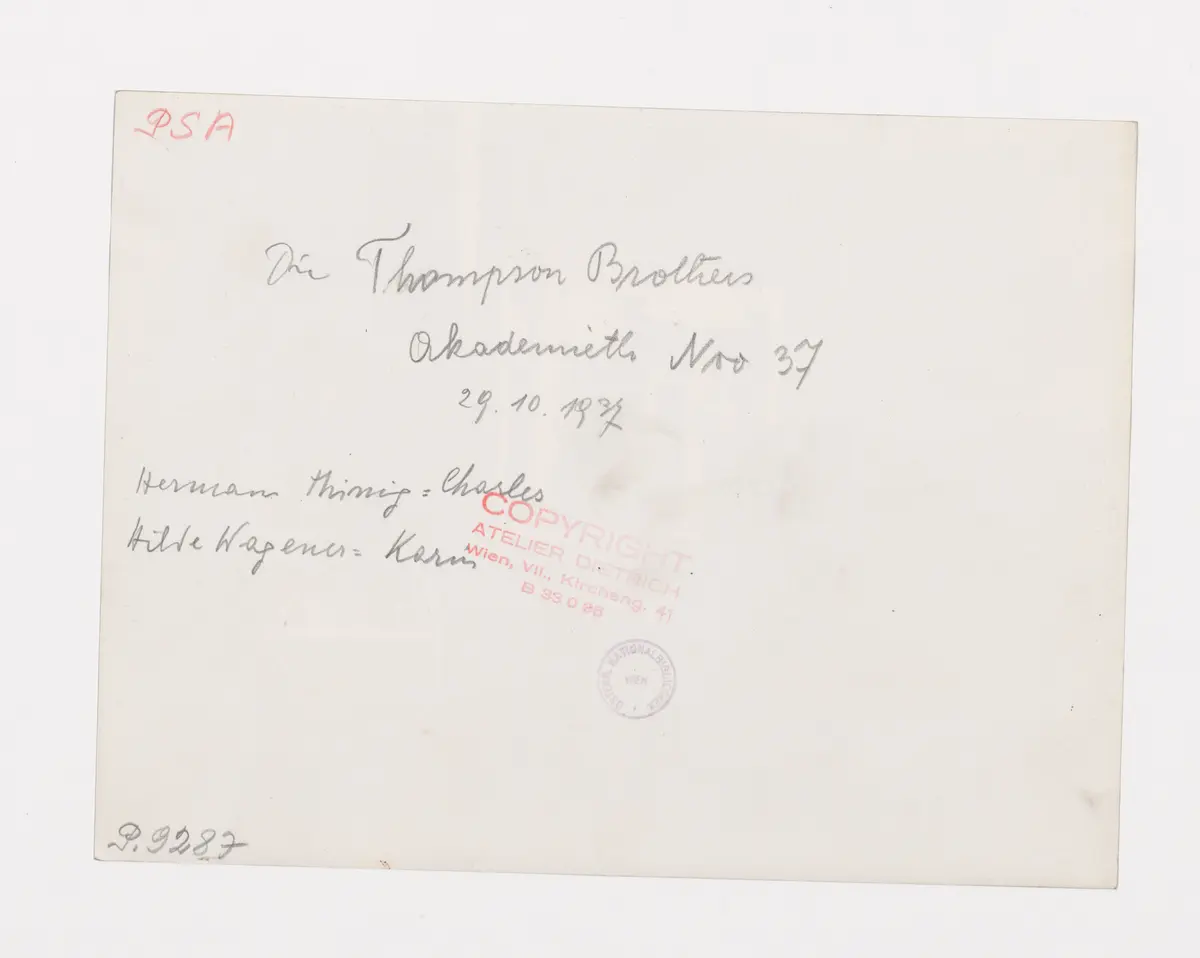 PSA
Die Thompson Brothers
Akademieth. Nov 37
29. 10. 1937
Hermann Thimig = Charles
Hilde Wagener = Karin
COPYRIGHT
ATELIER DIETRICH
Wien, VII., Kircheng. 41
B 33 0 86
NATIONALBIBLIOTHEK
WIEN
P. 9287